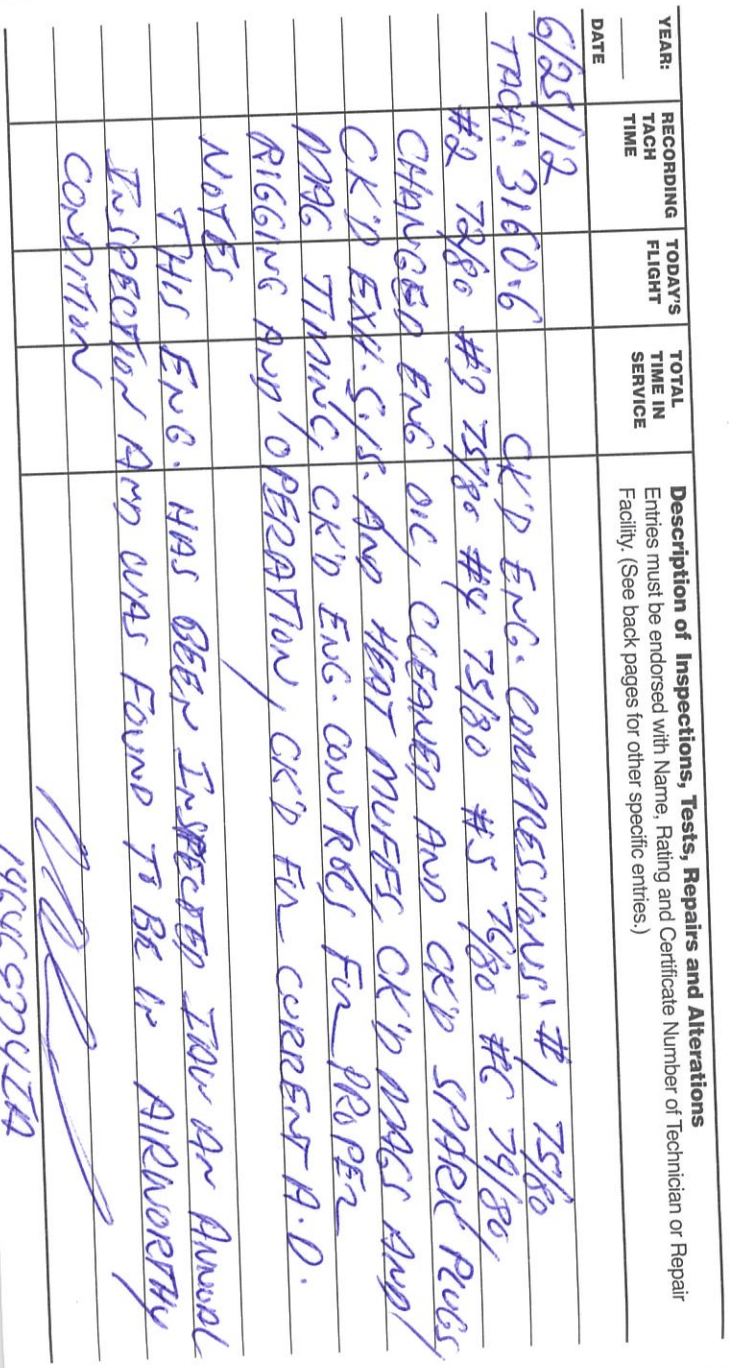 YEAR:
DATE
RECORDING TACH TIME
TODAY'S FLIGHT
TOTAL TIME IN SERVICE
Description of Inspections, Tests, Repairs and Alterations
Entries must be endorsed with Name, Rating and Certificate Number of Technician or Repair
Facility. (See back pages for other specific entries.)
6/25/12
TACH: 3160.6 CK'D ENG. COMPRESSIONS: #1 75/80
#2 72/80 #3 75/80 #4 75/80 #5 76/80 #6 74/80,
CHANGED ENG OIL, CLEANED AND CK'D SPARK PLUGS,
CK'D EXH. SYS. AND HEAT MUFFS, CK'D MAGS AND
MAG TIMING, CK'D ENG. CONTROLS FOR PROPER
RIGGING AND OPERATION, CK'D FOR CURRENT A.D.
NOTES
THIS ENG. HAS BEEN INSPECTED IAW AN ANNUAL
INSPECTION AND WAS FOUND TO BE IN AIRWORTHY
CONDITION